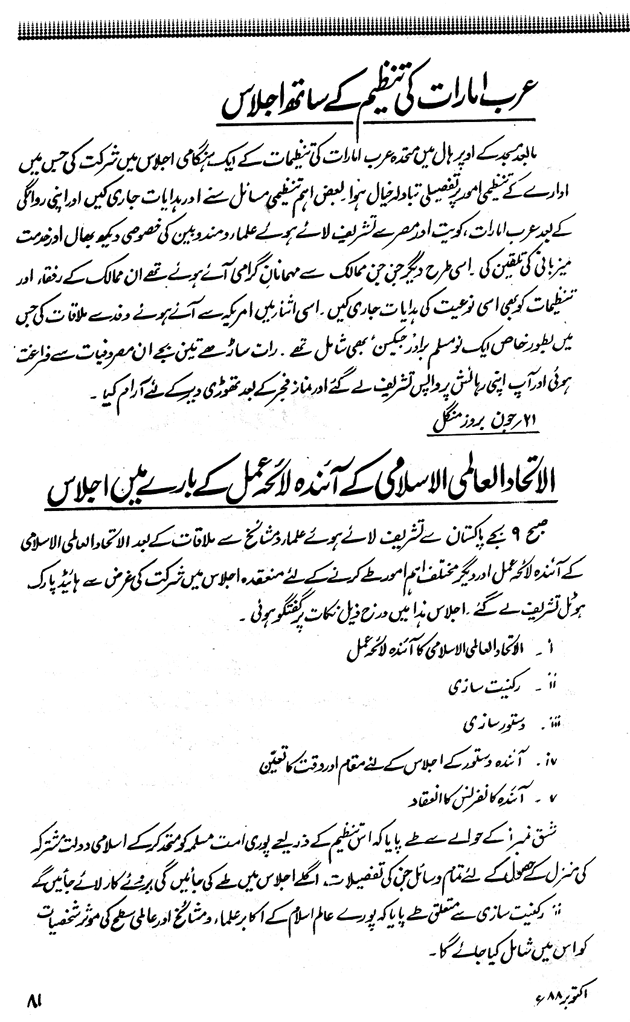 عرب امارات کی تنظیم کے ساتھ اجلاس
مابعد مسجد کے اوپر ہال میں متحدہ عرب امارات کی تنظیمات کے ایک ہنگامی اجلاس میں شرکت کی جس میں
ادارے کے تنظیمی امور پر تفصیلی تبادلہ خیال ہوا۔ بعض اہم تنظیمی مسائل سنے اور ہدایات جاری کیں اور اپنی روانگی
کے بعد عرب امارات، کویت اور مصر سے تشریف لائے ہوئے علماء و مندوبین کی خصوصی دیکھ بھال اور خدمت
میزبانی کی تلقین کی۔ اسی طرح دیگر جن جن ممالک سے مہمانانِ گرامی آئے ہوئے تھے ان ممالک کے رفقاء اور
تنظیمات کو بھی اسی نوعیت کی ہدایات جاری کیں۔ اسی اثناء میں امریکہ سے آئے ہوئے وفد سے ملاقات کی جس
میں بطور خاص ایک نومسلم برادر جیکسن بھی شامل تھے۔ رات ساڑھے تین بجے ان مصروفیات سے فراغت
ہوئی اور آپ اپنی رہائش پر واپس تشریف لے گئے اور نماز فجر کے بعد تھوڑی دیر کے لئے آرام کیا۔
۲۱؍ جون بروز منگل
الاتحاد العالمی الاسلامی کے آئندہ لائحہ عمل کے بارے میں اجلاس
صبح ۹ بجے پاکستان سے تشریف لائے ہوئے علماء و مشائخ سے ملاقات کے بعد الاتحاد العالمی الاسلامی
کے آئندہ لائحہ عمل اور دیگر مختلف اہم امور طے کرنے کے لئے منعقدہ اجلاس میں شرکت کی غرض سے ہائیڈ پارک
ہوٹل تشریف لے گئے۔ اجلاس ہذا میں درج ذیل نکات پر گفتگو ہوئی۔
i - الاتحاد العالمی الاسلامی کا آئندہ لائحہ عمل
ii - رکنیت سازی
iii - دستور سازی
iv - آئندہ دستور کے اجلاس کے لئے مقام اور وقت کا تعیّن
v - آئندہ کانفرنس کا انعقاد
شق نمبر i کے حوالے سے طے پایا کہ اس تنظیم کے ذریعے پوری امت مسلمہ کو متحد کر کے اسلامی دولت مشترکہ
کی منزل کے حصول کے لئے تمام وسائل جن کی تفصیلات، اگلے اجلاس میں طے کی جائیں گی بروئے کار لائے جائیں گے
ii رکنیت سازی سے متعلق طے پایا کہ پورے عالم اسلام کے اکابر علماء و مشائخ اور عالمی سطح کی موثر شخصیات
کو اس میں شامل کیا جائے گا۔
اکتوبر ۸۸ء
۸۱